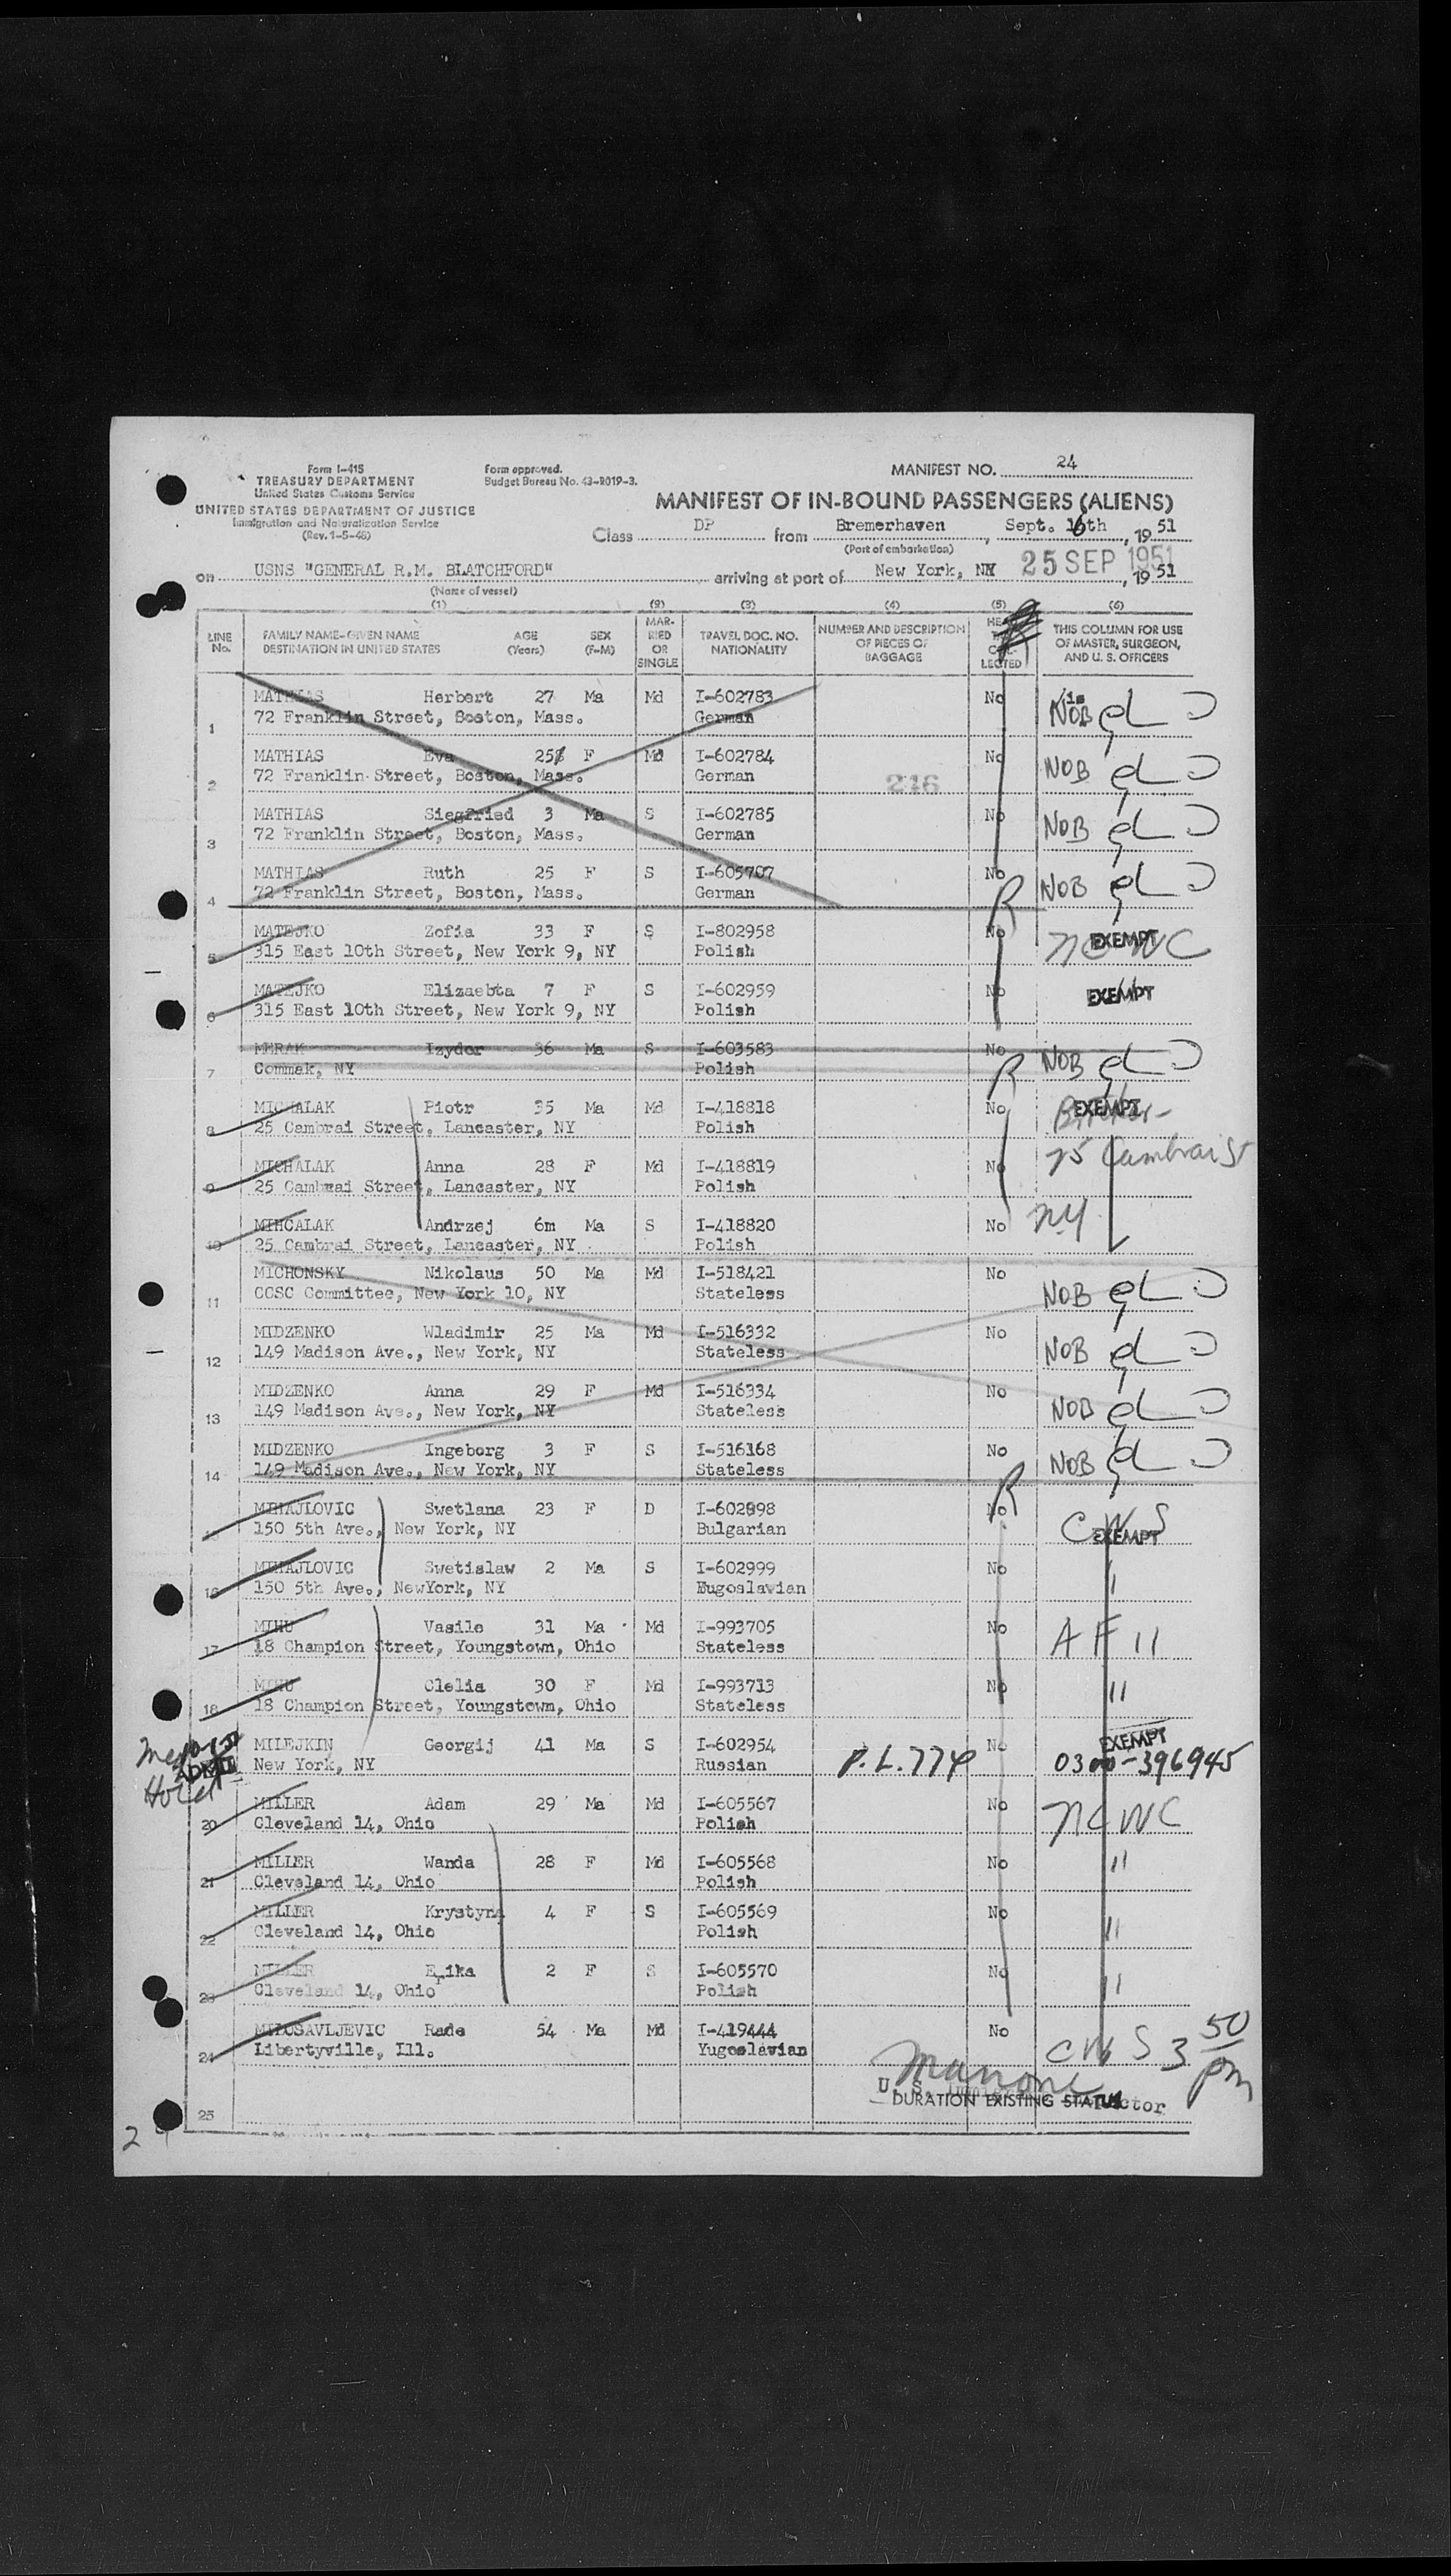 Form I-415
TREASURY DEPARTMENT
United States Customs Service
UNITED STATES DEPARTMENT OF JUSTICE
Immigration and Naturalization Service
(Rev. 1-5-48)
Form approved.
Budget Bureau No. 43-R019-3.
MANIFEST NO. 24
MANIFEST OF IN-BOUND PASSENGERS (ALIENS)
Class DP from Bremerhaven, Sept. 16th, 19 51
(Port of embarkation)
on USNS "GENERAL R.M. BLATCHFORD" arriving at port of New York, NY 25 SEP 1951, 19 51
(Name of vessel)
(1) (2) (3) (4) (5) (6)
LINE No. FAMILY NAME-GIVEN NAME DESTINATION IN UNITED STATES AGE (Years) SEX (F-M) MARRIED OR SINGLE TRAVEL DOC. NO. NATIONALITY NUMBER AND DESCRIPTION OF PIECES OF BAGGAGE LECTED THIS COLUMN FOR USE OF MASTER, SURGEON, AND U. S. OFFICERS
1 MATHIAS Herbert 27 Ma Md I-602783 No NOB
72 Franklin Street, Boston, Mass. German
2 MATHIAS Eva 25 F Md I-602784 No NOB
72 Franklin Street, Boston, Mass. German 246
3 MATHIAS Siegfried 3 Ma S I-602785 No NOB
72 Franklin Street, Boston, Mass. German
4 MATHIAS Ruth 25 F S I-605707 No NOB
72 Franklin Street, Boston, Mass. German
5 MATEJKO Zofia 33 F S I-802958 No EXEMPT NCWC
315 East 10th Street, New York 9, NY Polish
6 MATEJKO Elizaebta 7 F S I-602959 No EXEMPT
315 East 10th Street, New York 9, NY Polish
7 MERAK Izydor 36 Ma S I-603583 No NOB
Commak, NY Polish
8 MICHALAK Piotr 35 Ma Md I-418818 No EXEMPT
25 Cambrai Street, Lancaster, NY Polish
9 MICHALAK Anna 28 F Md I-418819 No 25 Cambrai St
25 Cambrai Street, Lancaster, NY Polish
10 MIHCALAK Andrzej 6m Ma S I-418820 No NY
25 Cambrai Street, Lancaster, NY Polish
11 MICHONSKY Nikolaus 50 Ma Md I-518421 No NOB
CCSC Committee, New York 10, NY Stateless
12 MIDZENKO Wladimir 25 Ma Md I-516332 No NOB
149 Madison Ave., New York, NY Stateless
13 MIDZENKO Anna 29 F Md I-516334 No NOB
149 Madison Ave., New York, NY Stateless
14 MIDZENKO Ingeborg 3 F S I-516168 No NOB
149 Madison Ave., New York, NY Stateless
MIHAJLOVIC Swetlana 23 F D I-602998 No CWS EXEMPT
150 5th Ave., New York, NY Bulgarian
16 MIHAJLOVIC Swetislaw 2 Ma S I-602999 No
150 5th Ave., NewYork, NY Eugoslavian
17 MIHU Vasile 31 Ma Md I-993705 No AF 11
18 Champion Street, Youngstown, Ohio Stateless
18 MIHU Clelia 30 F Md I-993713 No "
18 Champion Street, Youngstown, Ohio Stateless
MILEJKIN Georgij 41 Ma S I-602954 P.L. 774 No EXEMPT 0300-396945
New York, NY Russian
Hotel
20 MILLER Adam 29 Ma Md I-605567 No NCWC
Cleveland 14, Ohio Polish
21 MILLER Wanda 28 F Md I-605568 No "
Cleveland 14, Ohio Polish
22 MILLER Krystyna 4 F S I-605569 No "
Cleveland 14, Ohio Polish
23 MILLER Erika 2 F S I-605570 No "
Cleveland 14, Ohio Polish
24 MILOSAVLJEVIC Rade 54 Ma Md I-419444 No CWS 3 50 pm
Libertyville, Ill. Yugoslavian
U. S.
DURATION EXISTING STATUS
25
2